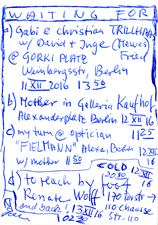 WAITING FOR
a) Gabi & Christian TRILLHAA
w/ David + Inge (Mewes)
@ GORKI PLATE Freed
Weinbergsstr, Berlin
11 XII 2016 13 50
b) Mother in Galleria Kaufhof
Alexanderplatz Berlin 12 XII 16
c) my turn @ optician 11 25
"FIELMANN" Alexa, Berlin 12 XII 16
w/ mother 11 50
COLD
2030 12 XII 16
d) to reach by foot
Renate Wolff 170 Forst →
and back 13 XII 16 110 chausse
10 22 30 STT-110